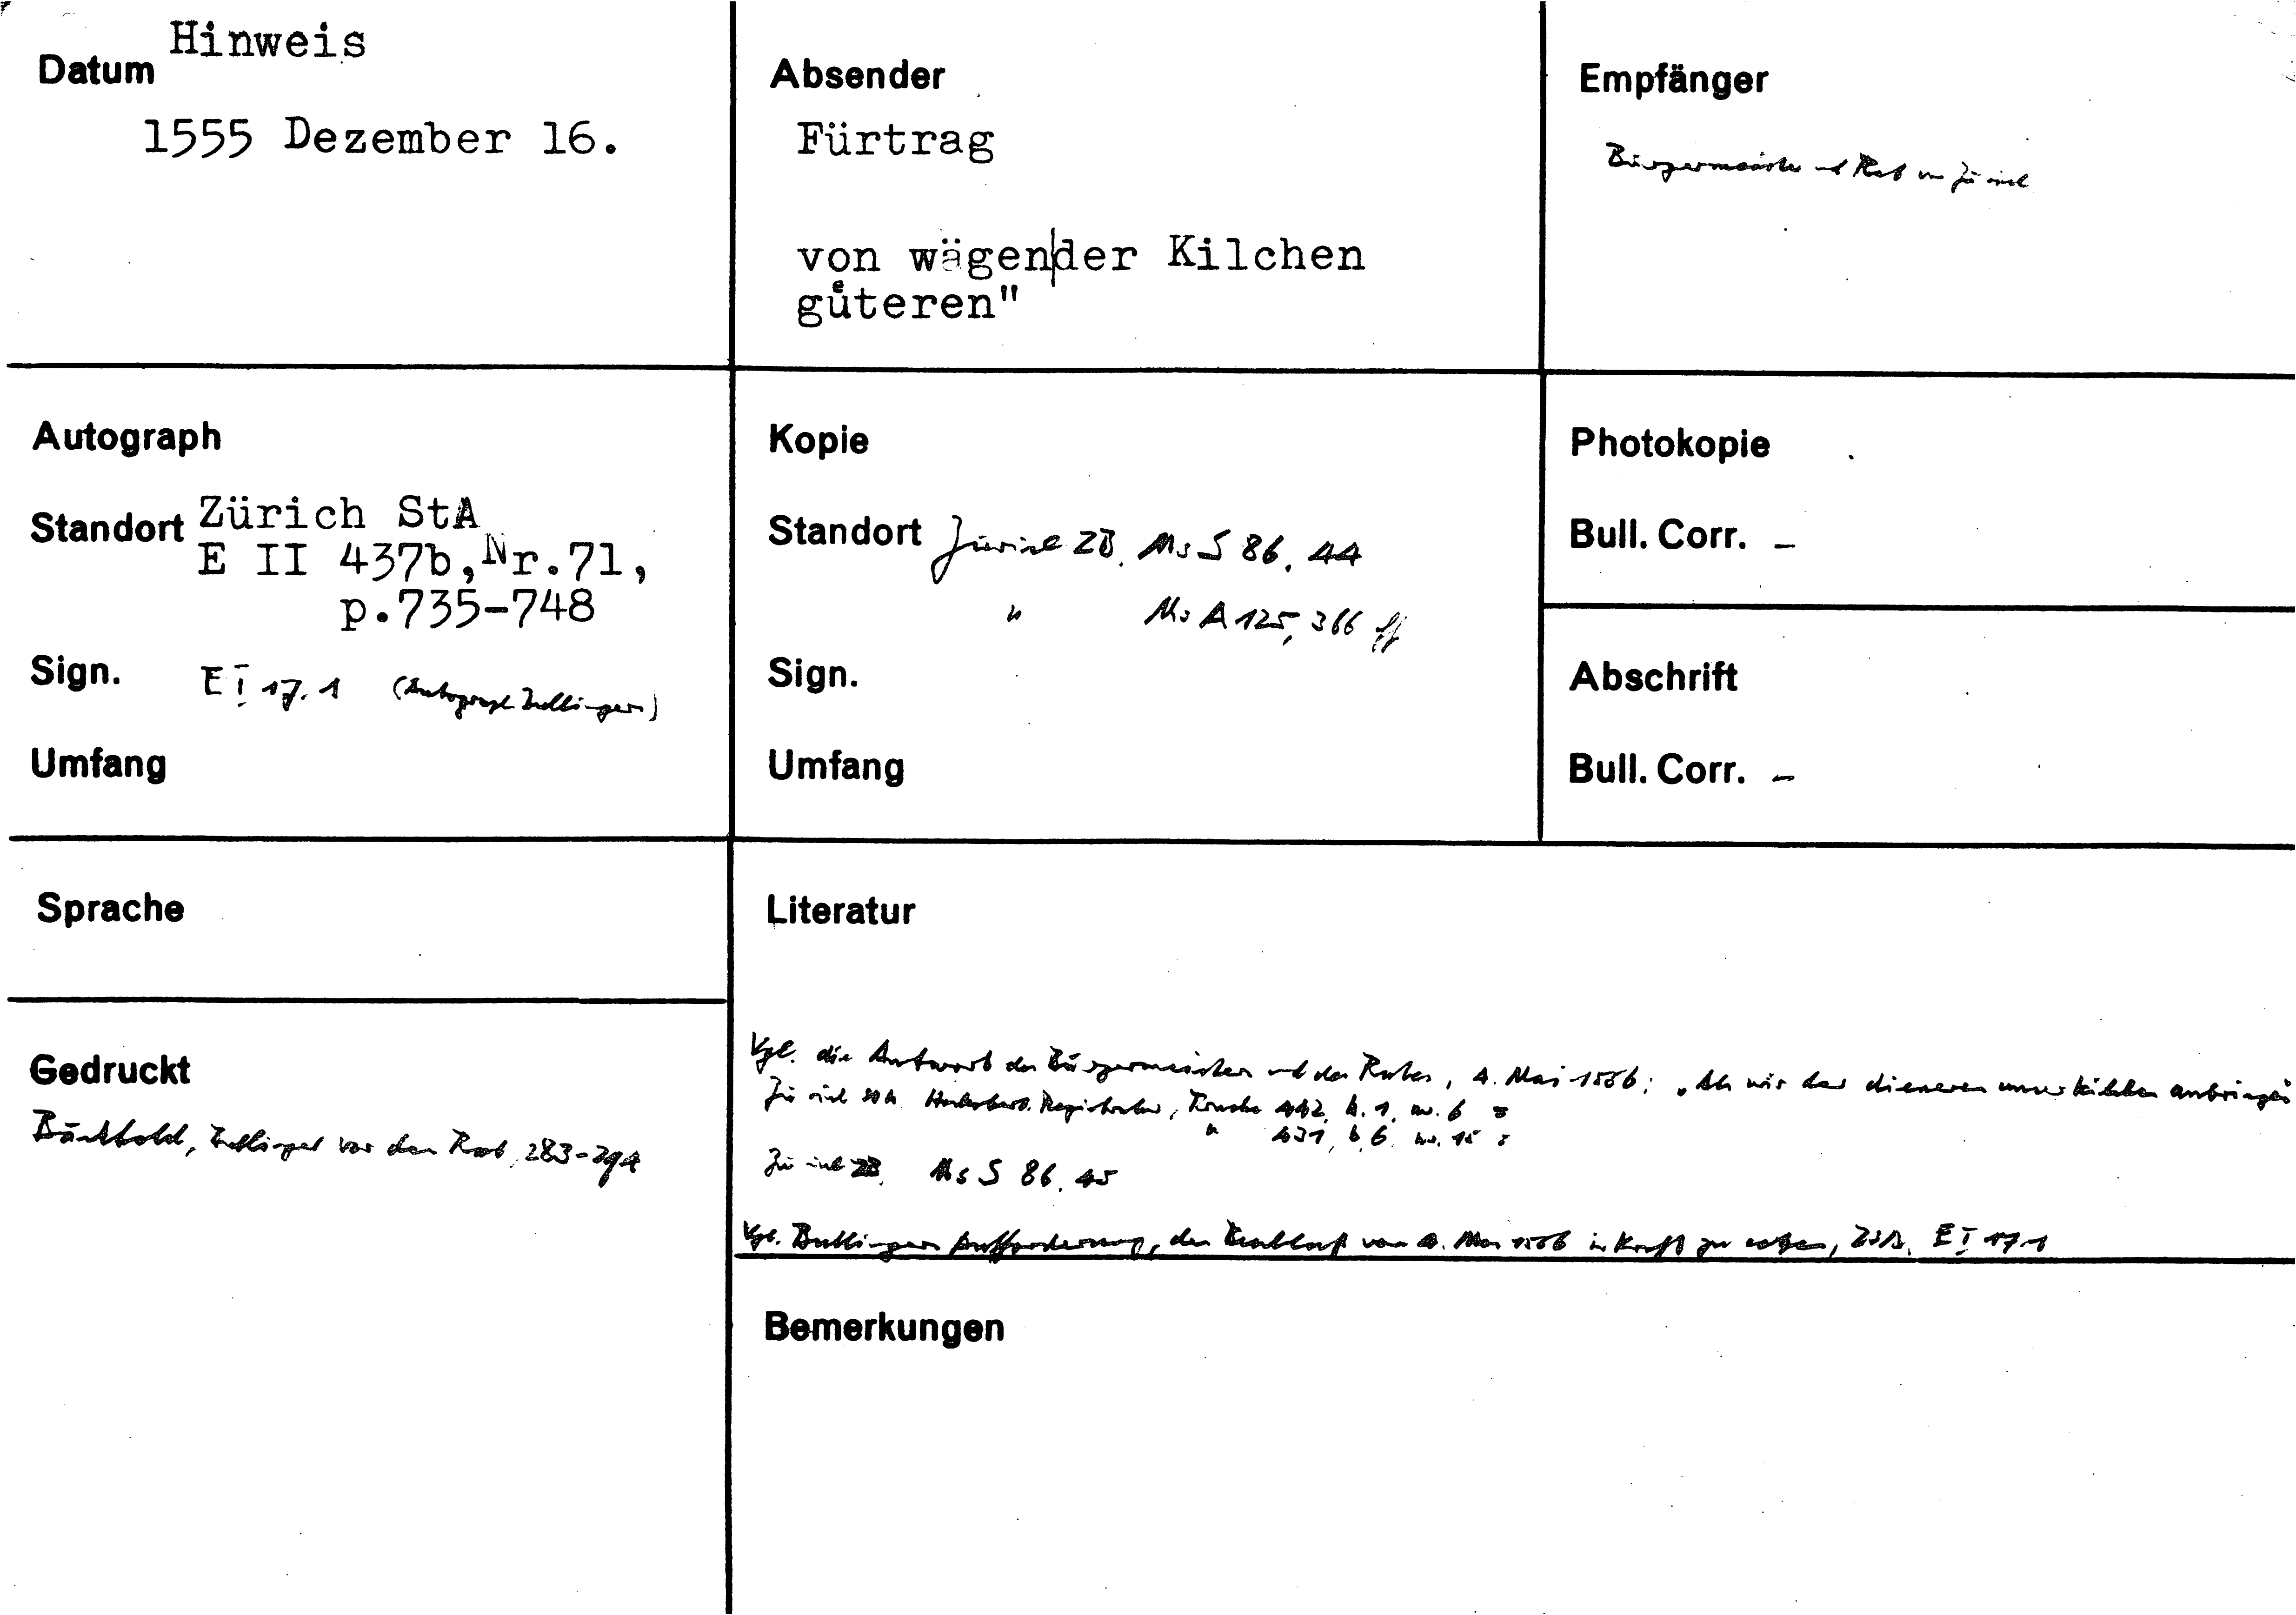 Hinweis
Datum
1555 Dezember 16.
Absender
Fürtrag
von wägen|der Kilchen
gůteren"
Empfänger
Bürgermeister und Rat von Zürich
Autograph
Standort Zürich StA
E II 437b, Nr.71,
p.735-748
Sign. E I 17.1 (Autograph Bullingers)
Umfang
Kopie
Standort Zürich ZB. Ms S 86, 44
" Ms A 125, 366 ff
Sign.
Umfang
Photokopie
Bull. Corr. –
Abschrift
Bull. Corr. –
Sprache
Gedruckt
Bächtold, Bullinger vor dem Rat, 283-294
Literatur
Vgl. die Antwort des Bürgermeisters und des Rates, 4. Mai 1556: "Als wir das dieneren unser kilchen anbringen
Zürich Registratur, 442, 1, nr. 6
" 431, 6, nr. 15
Zürich ZB. Ms S 86, 45
Vgl. Bullingers Aufforderung, den vom 4. Mai 1556 in Kraft zu setzen, E I 17.1
Bemerkungen